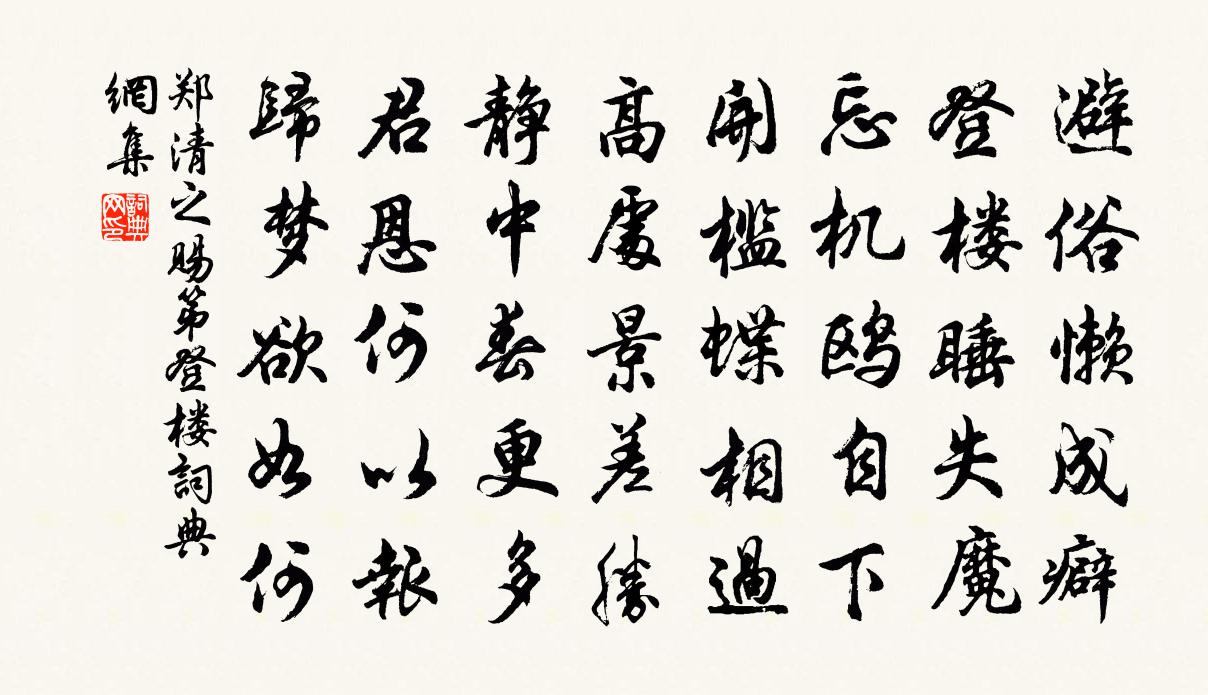 避俗懒成癖
登楼睡失魔
忘机鸥自下
開槛蝶相過
高處景差勝
静中春更多
君恩何以報
歸梦欲如何
郑清之赐第登楼詞典
網集
詞典
网印